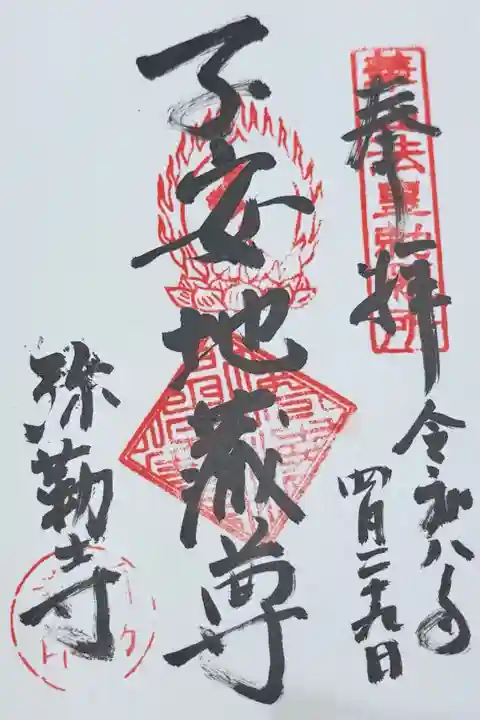 奉拝
令和八年
四月二十九日
子安地蔵尊
弥勒寺